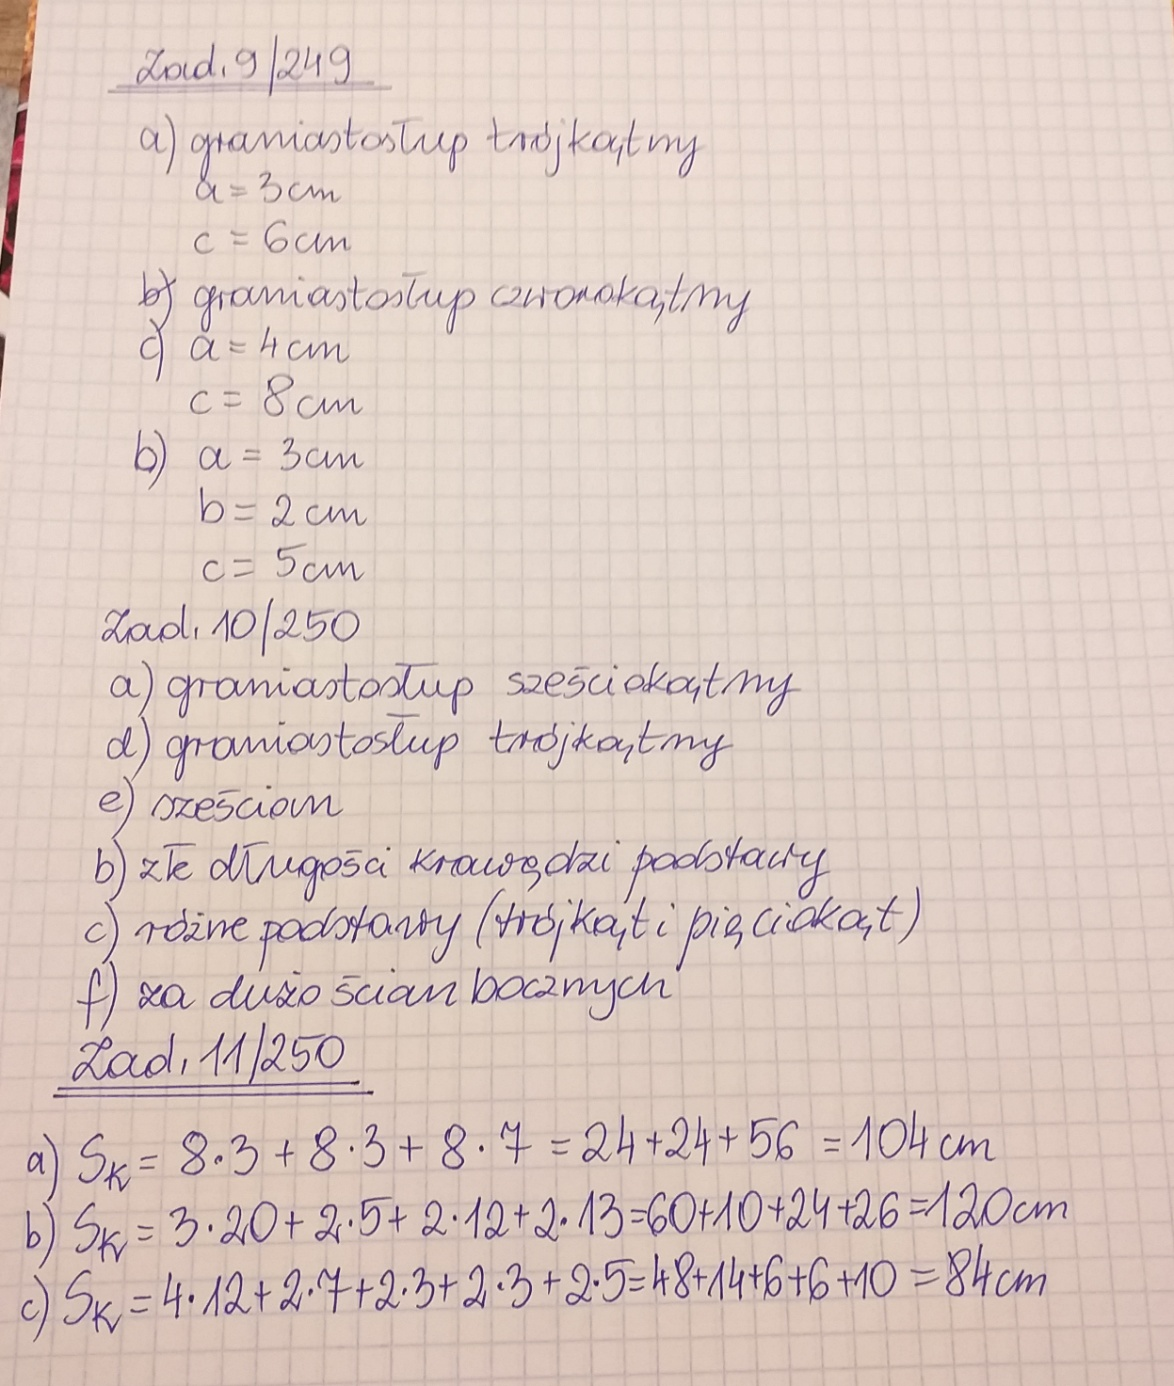 Zad. 9/249
a) graniastosłup trójkątny
a = 3cm
c = 6cm
b) graniastosłup czworokątny
c) a = 4cm
c = 8cm
b) a = 3cm
b = 2cm
c = 5cm
Zad. 10/250
a) graniastosłup sześciokątny
d) graniastosłup trójkątny
e) sześcian
b) złe długości krawędzi podstawy
c) różne podstawy (trójkąt i pięciokąt)
f) za dużo ścian bocznych
Zad. 11/250
a) Sₖ = 8·3 + 8·3 + 8·7 = 24+24+56 = 104cm
b) Sₖ = 3·20+2·5+2·12+2·13=60+10+24+26=120cm
c) Sₖ = 4·12+2·7+2·3+2·3+2·5=48+14+6+6+10 = 84cm